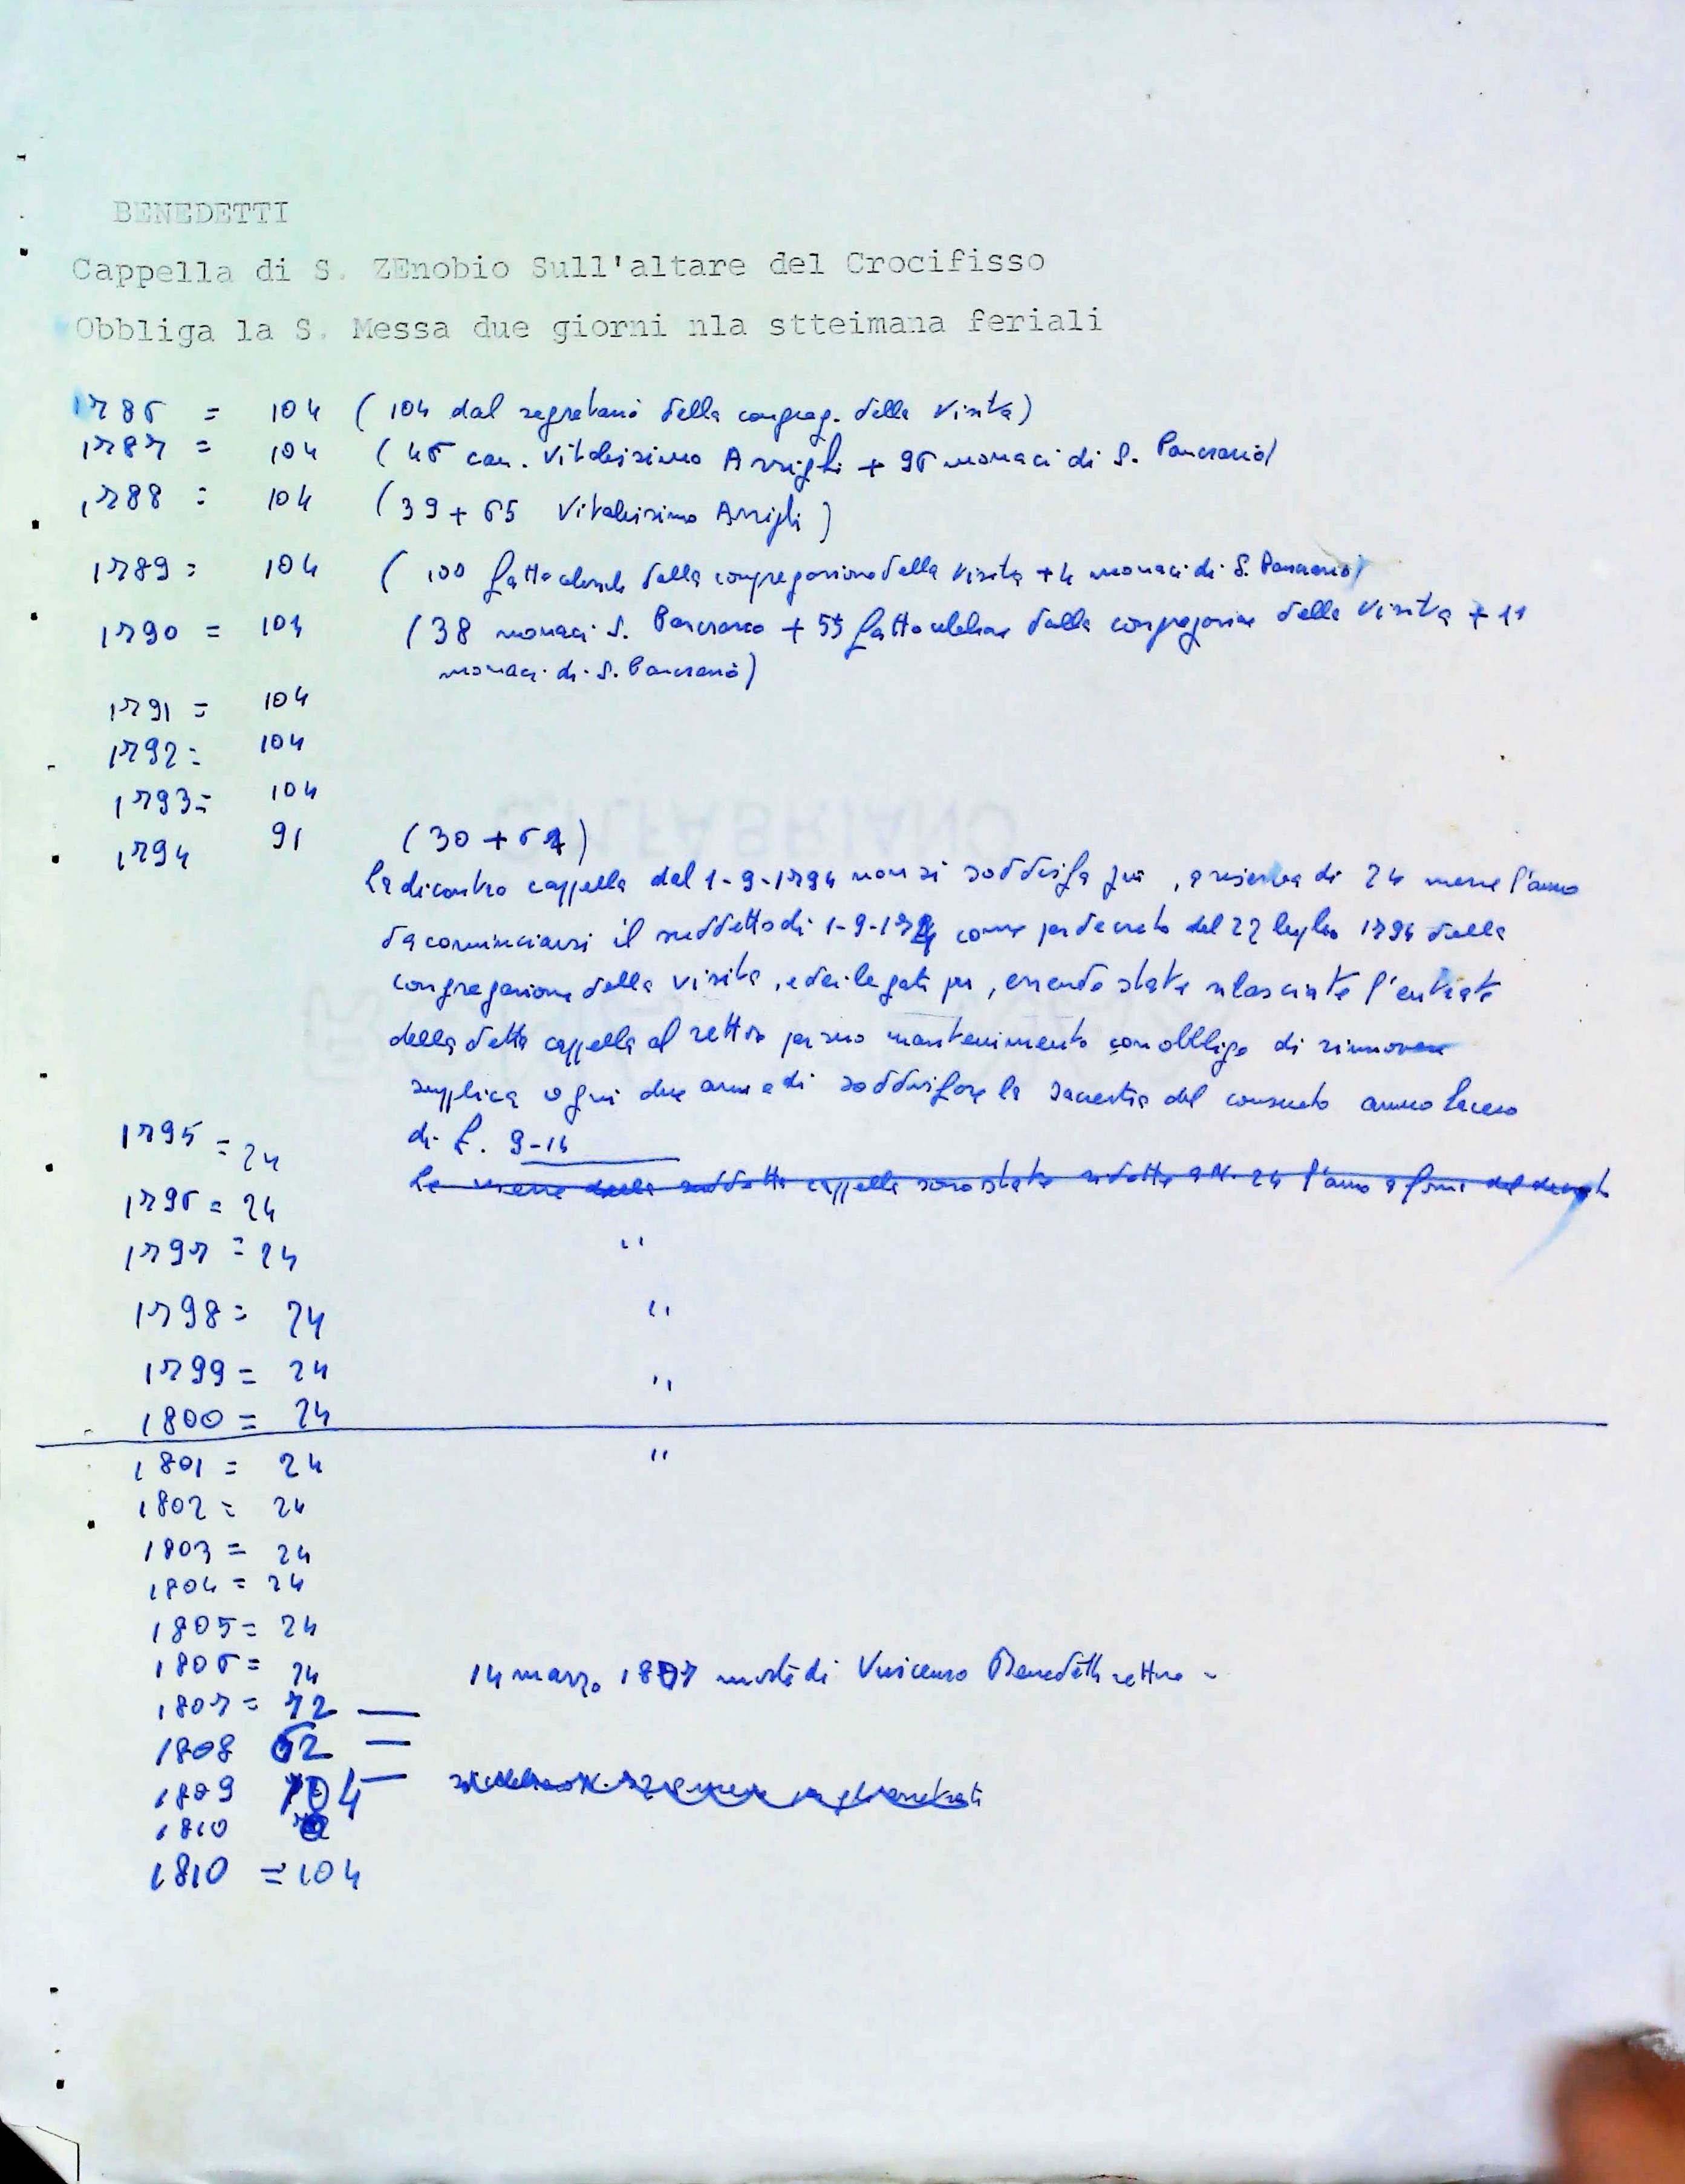 BENEDETTI
Cappella di S. ZEnobio Sull'altare del Crocifisso
Obbliga la S. Messa due giorni nla stteimana feriali
1786 = 104 (104 dal segretario della congreg. della Visita)
1787 = 104 (46 can. Arrighi + 96 monaci di S. Pancrazio)
1788 = 104 (39 + 65 Arrighi)
1789 = 104 (100 fatte dalla congregazione della Visita + 4 monaci di S. Pancrazio)
1790 = 104 (38 monaci S. Pancrazio + 55 fatte celebrare dalla congregazione della Visita + 11
monaci di S. Pancrazio)
1791 = 104
1792 = 104
1793 = 104
1794 91 (30 + 61)
La dicontro cappella dal 1-9-1794 non si soddisfa più, a riserva di 24 messe l'anno
da cominciarsi il suddetto di 1-9-1794 come per decreto del 22 luglio 1794 della
congregazione della visita, e dei legati pii, essendo state rilasciate l'entrate
della detta cappella al rettore per suo mantenimento con obbligo di rinnovare
supplica ogni due anni e di soddisfare la sacrestia del consueto annuo
di £. 9-14
1795 = 24
Le messe della suddetta cappella sono state ridotte a N. 24 l'anno a forma del decreto
1796 = 24
1797 = 24 "
1798 = 24 "
1799 = 24 "
1800 = 24
1801 = 24 "
1802 = 24
1803 = 24
1804 = 24
1805 = 24
1806 = 24 14 marzo 1807 morte di Vincenzo Benedetti rettore
1807 = 72
1808 62
1809 104
1810
1810 = 104